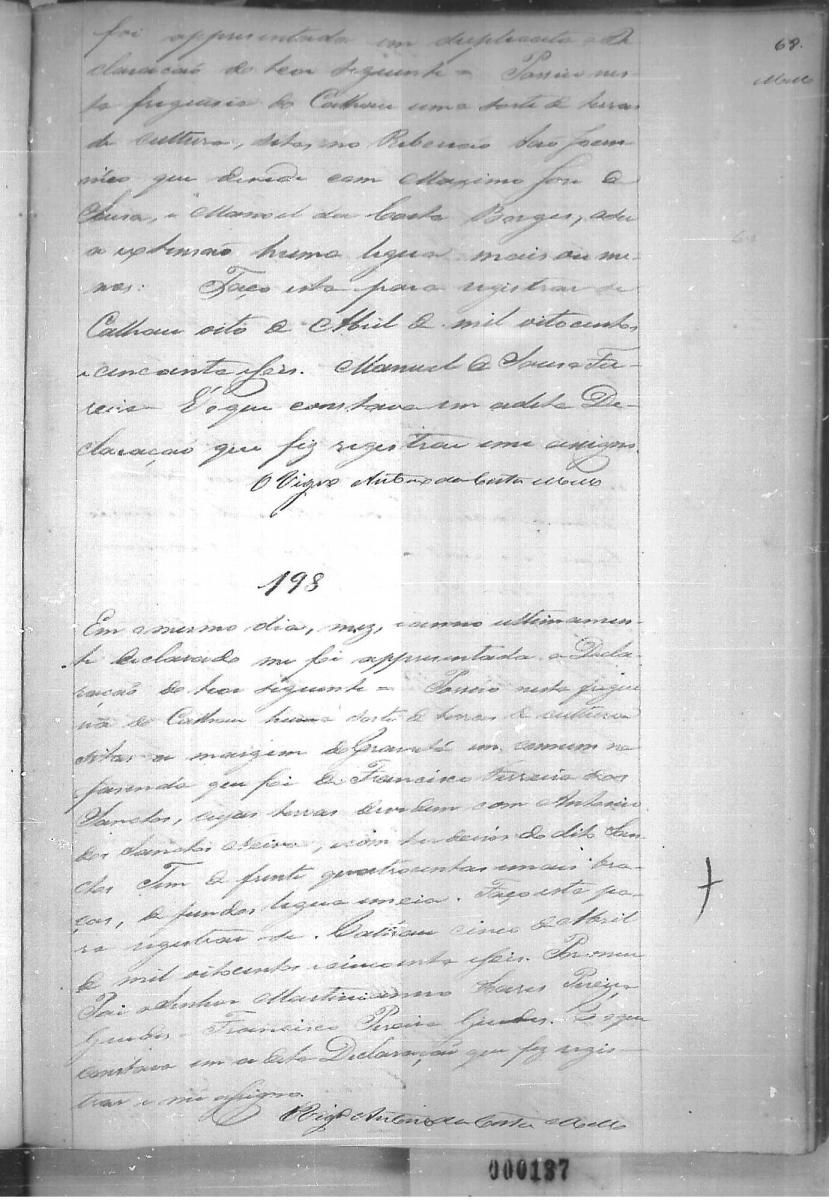 68.
Mello
foi appresentada em duplicata a De
claração do teor seguinte = Possuo nes
ta freguesia do Calhau uma sorte de terras
de cultura, sitas no Ribeirão São Joa
que divide com Maximo José de
Sousa, e Manoel da Costa Borges,
a extensão huma legua mais ou me
nos: Faço esta para registrar se
Calhau oito de Abril de mil oitocentos
e cincoenta e seis. Manuel de Sousa Fa-
ria E o que constava em a dita De-
claração que fiz registrar e me assigno.
O Vigro Antonio da Costa Mello
198
Em o mesmo dia, mez, e anno ultimamen-
te declarado me foi appresentada a Decla-
ração do teor seguinte = Possuo nesta fregue
sia do Calhau huma sorte de terras de cultura
sitas a margem do Gravatá em comum na
fazenda que foi de Francisco Ferreira dos
Santos, cujas terras dividem com Antonio
dos Santos Neiva, e com herdeiros do dito San-
tos Tem de frente quatrocentas e mais bra-
ças, de fundos legua e meia. Faço esta pa-
ra registrar se. Calhau cinco de Abril
de mil oitocentos e cincoenta e seis. Por meu
Pai o Senhor Martiniano Soares Pereira
Guedes - Francisco Pereira Guedes. E o que
constava em a dita Declaração que fiz regis-
trar e me assigno.
O Vigro Antonio da Costa Mello
000137